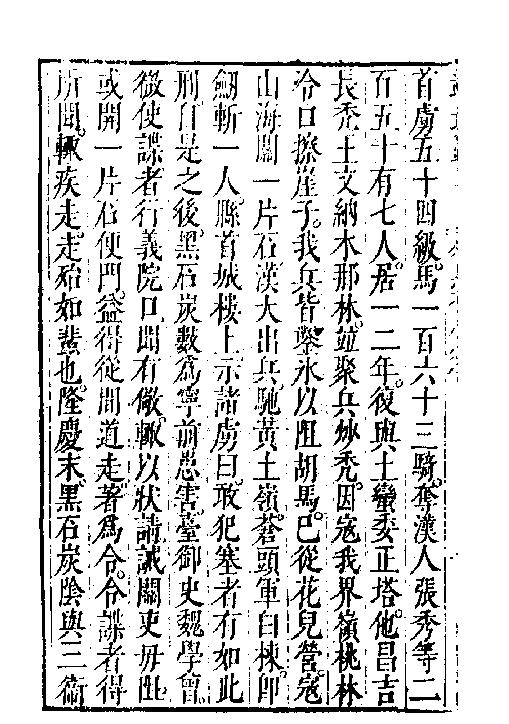 首虜五十四級。馬一百六十三騎。奪漢人張秀等二
百五十有七人。居一二年。復與土蠻委正塔他昌吉
長禿土文納木那林。並聚兵炒禿。因寇我界嶺桃林
冷口擦崖子。我兵皆鑿氷以阻胡馬。巳從花兒營寇
山海關一片石漢大出兵馳黃土嶺。蒼頭軍白棟卽
劒斬一人。縣首城楼上示諸虜曰。敢犯塞者有如此
刑。自是之後。黑石炭數爲寧前患害。臺御史魏學曾。
徵使諜者行義院口聞有儆輙以狀請誡關吏毋阻
或開一片石便門。益得從間道走著爲令。令諜者得
所聞。輙疾走。走殆如蜚也。隆慶末。黑石炭陰與三衛